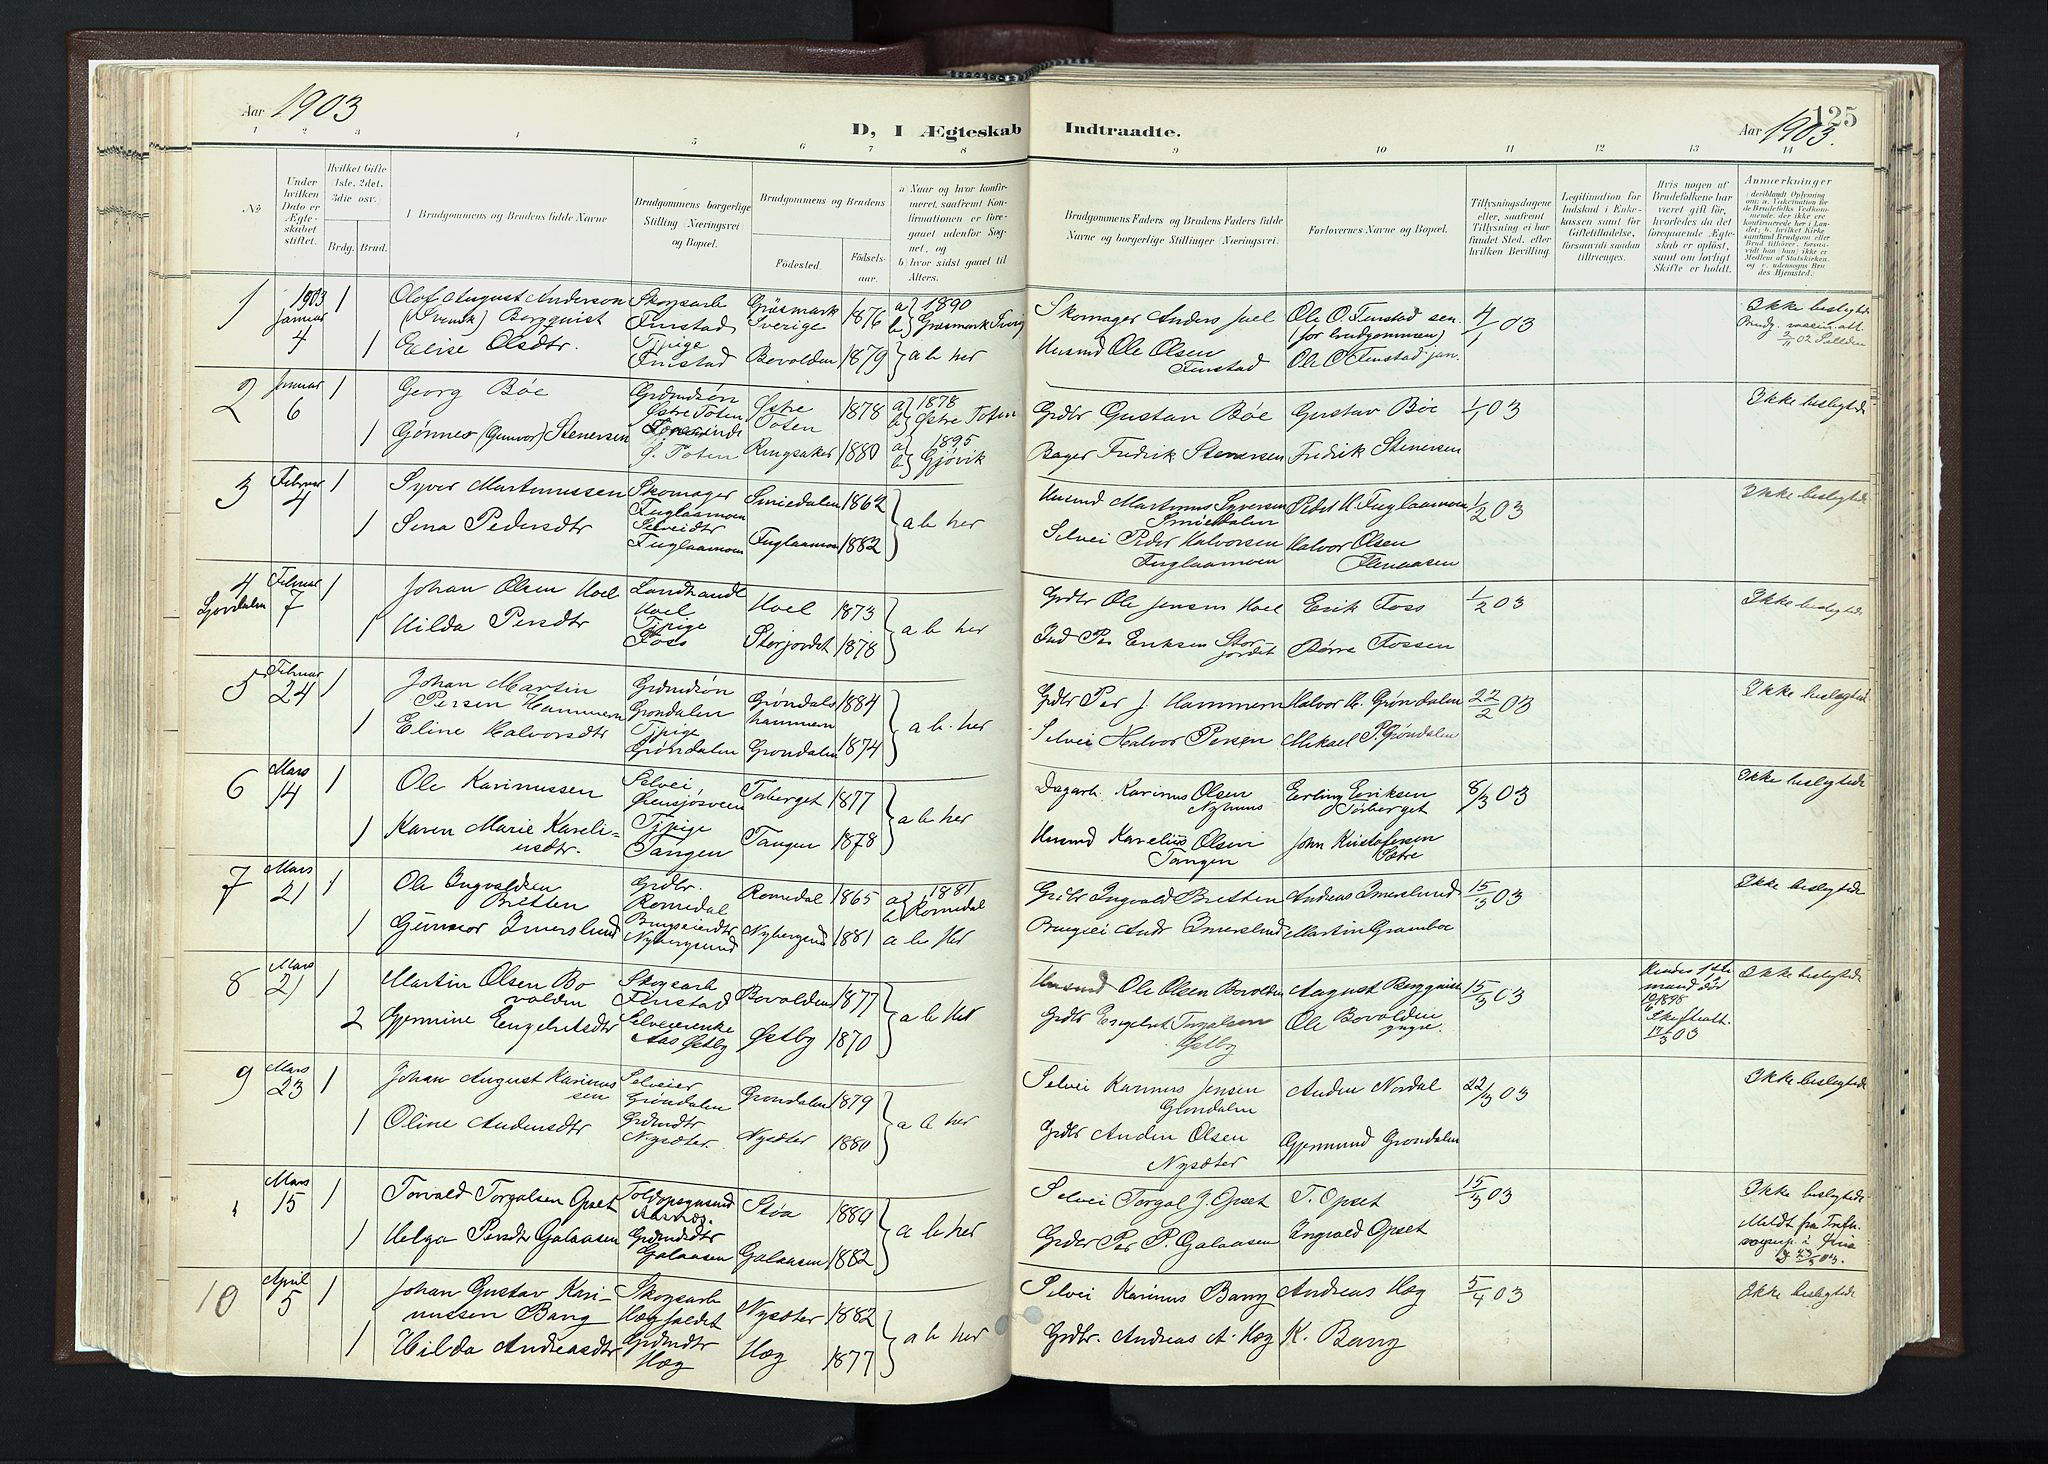 Aar 1903
D, I Ægteskab Indtraadte.
Aar 1903.
125
1 2 3 4 5 6 7 8 9 10 11 12 13 14
No
Under hvilken Dato er Ægteskabet stiftet.
Hvilket Gifte 1ste, 2det, 3die osv.
Brdg. Brud.
Brudgommens og Brudens fulde Navne
Brudgommens borgerlige Stilling (Næringsvei) og Bopæl.
Brudgommens og Brudens
Fødested.
Fødselsaar.
a Naar og hvor konfirmeret, saafremt Konfirmationen er foregaaet udenfor Sognet, og
b hvor sidst gaaet til Alters.
Brudgommens Faders og Brudens Faders fulde Navne og borgerlige Stillinger (Næringsvei).
Forlovernes Navne og Bopæl.
Tillysningsdagene eller, saafremt Tillysning ei har fundet Sted, efter hvilken Bevilling.
Legitimation for Indskud i Enkekassen samt for Giftetilladelse, forsaavidt saadan tiltrænges.
Hvis nogen af Brudefolkene har været gift før, hvorledes da det foregaaende Ægteskab er opløst, samt om lovligt Skifte er holdt.
Anmerkninger
1 1903 Januar 4 1 Olof August Anderson (Svensk) Borgquist Skogsarb Finstad Gräsmark Sverige 1876 a) 1890 b) Gräsmark Sverig Skomager Anders Juel Ole O. Finstad sen. (for brudgommen) 4/1 03 Ikke beslegtede
1 Elise Olsdtr. Pige Finstad Bovolden 1879 a b her Husmd Ole Olsen Finstad Ole O Finstad jun.
2 Januar 6 1 Georg Bøe Grdmdsøn Østre Toten Østre Toten 1878 a) 1878 b) Østre Toten Grdbr Gustav Bøe Gustav Bøe 1/1 03 Ikke beslegtede
1 Gønner (Gunvor) Stenersen Ø. Toten Ringsaker 1880 a) 1895 b) Gjøvik Bager Fredrik Stenersen Fredrik Stenersen
3 Februar 4 1 Syver Martinussen Skomager Fuglaamoen Smiedalen 1862 a b her Husmd Martinus Syversen Smiedalen Peder H. Fuglaamoen 1/2 03 Ikke beslegtede
1 Sena Pedersdtr Selveidtr Fuglaamoen Fuglaamoen 1882 Selvei Peder Halvorsen Fuglaamoen Halvor Olsen Flenaasen
4 Ljørdalen Februar 7 1 Johan Olsen Hoel Landhandl Hoel Hoel 1873 a b her Grdbr Ole Jensen Hoel Erik Foss 1/2 03 Ikke beslegtede
1 Hilda Persdtr Pige Foss Storjordet 1878 Ind Per Eriksen Storjordet Børre Fossen
5 Februar 24 1 Johan Martin Persen Hammern Grdmdsøn Grøndalen Grøndals hammern 1884 a b. her Grdbr Per J. Hammern Halvor H. Grøndalen 22/2 03 Ikke beslegtede
1 Eline Halvorsdtr Pige Grøndalen Grøndalen 1874 Selvei Halvor Persen Mikael P. Grøndalen
6 Mars 14 1 Ole Karinussen Selvei Grensjøsveen Torberget 1877 a b her Dagarb. Karinus Olsen Nyhuus Erling Eriksen Torberget 8/3 03 Ikke beslegtede
1 Karen Marie Kareliusdtr. Pige Tangen Tangen 1878 Husmd Karelius Olsen Tangen John Kristofersen Sætre
7 Mars 21 1 Ole Ingvaldsen Britten Grdbr. Romedal Romedal 1865 a) 1881 b) Romedal Grdbr Ingvald Britten Andreas Imerslund 15/3 03 Ikke beslegtede
1 Gunvor Imerslund Brugseierdtr Nybergsund Nybergsund 1881 a b Her Brugsei Andr Imerslund Martin Gramboe
8 Mars 21 1 Martin Olsen Bovolden Skogsarb Finstad Bovolden 1877 a b Her Husmd Ole Olsen Bovolden August Bergquist 15/3 03 Hendes 1ste mand død 1898 Skifteatt. 17/3 03 Ikke beslegtede
2 Gjermine Engebretsdtr Selveierenke Aas Østby Østby 1870 Grdbr Engebret Torgalsen Østby Ole Bovolden yngre.
9 Mars 23 1 Johan August Karinussen Selveier Grøndalen Grøndalen 1879 a b her Selvei Karinus Jensen Grøndalen Anden Nordal 22/3 03 Ikke beslegtede
1 Oline Andensdtr Grdmdtr Nysæter. Nysæter 1880 Grdbr Anden Olsen Nysæter Gjermund Grøndalen
Mars 15 1 Torvald Torgalsen Opset Støa 1880 a b her Selvei Torgal J. Opset T. Opset 15/3 03 Ikke beslegtede
1 Helga Persdtr Galaasen Galaasen Galaasen 1882 Grdbr Per P. Galaasen Ingvald Opset
10 April 5 1 Johan Gustav Karinussen Bang Skogsarb Nysæter 1882 a b her Selvei Karinus Bang Andreas Hæg 5/4 03 Ikke beslegtede
1 Hilda Andreasdtr Grdmdtr Hæg Hæg 1877 Grdbr. Andreas A. Hæg K. Bang